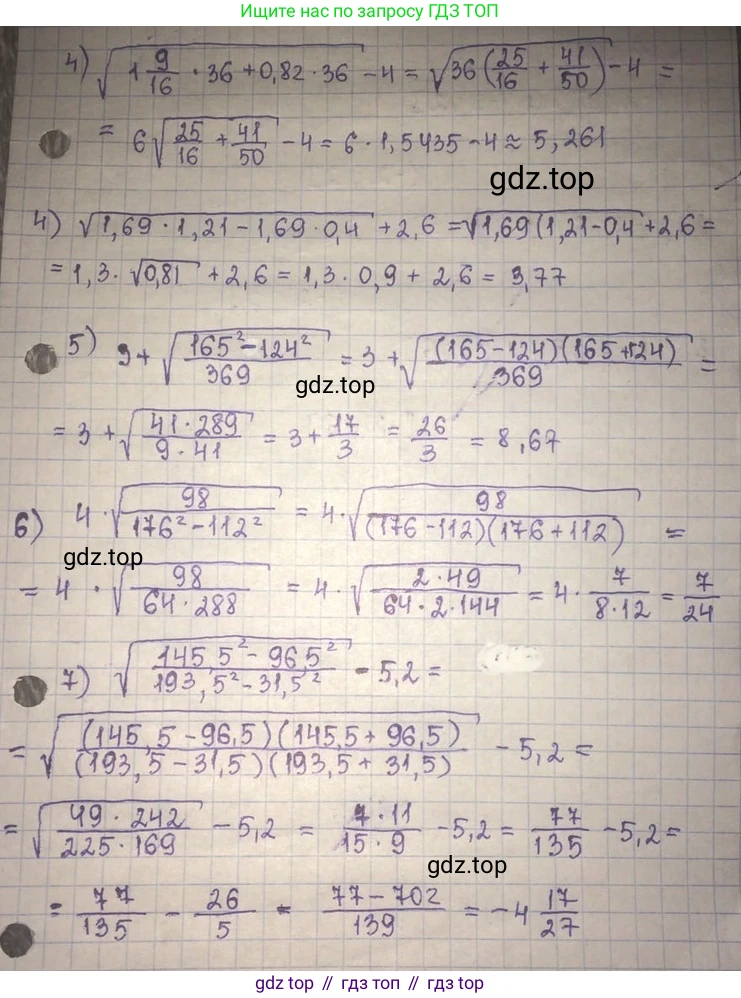 Ищите нас по запросу ГДЗ ТОП
4) √(1 9/16 · 36 + 0,82 · 36) - 4 = √(36(25/16 + 41/50)) - 4 =
= 6√(25/16 + 41/50) - 4 = 6 · 1,5435 - 4 ≈ 5,261
gdz.top
4) √(1,69 · 1,21 - 1,69 · 0,4) + 2,6 = √(1,69(1,21 - 0,4) + 2,6 =
= 1,3 · √0,81 + 2,6 = 1,3 · 0,9 + 2,6 = 3,77
5) 3 + √((165² - 124²)/369) = 3 + √((165 - 124)(165 + 124)/369) =
gdz.top
= 3 + √(41 · 289/(9 · 41)) = 3 + 17/3 = 26/3 = 8,67
6) 4 · √(98/(176² - 112²)) = 4 · √(98/((176 - 112)(176 + 112))) =
gdz.top
= 4 · √(98/(64 · 288)) = 4 · √(2 · 49/(64 · 2 · 144)) = 4 · 7/(8 · 12) = 7/24
7) √((145,5² - 96,5²)/(193,5² - 31,5²)) - 5,2 =
= √((145,5 - 96,5)(145,5 + 96,5)/((193,5 - 31,5)(193,5 + 31,5))) - 5,2 =
= √(49 · 242/(225 · 169)) - 5,2 = 7 · 11/(15 · 9) - 5,2 = 77/135 - 5,2 =
gdz.top
= 77/135 - 26/5 = (77 - 702)/139 = -4 17/27
gdz.top // гдз топ // гдз.топ